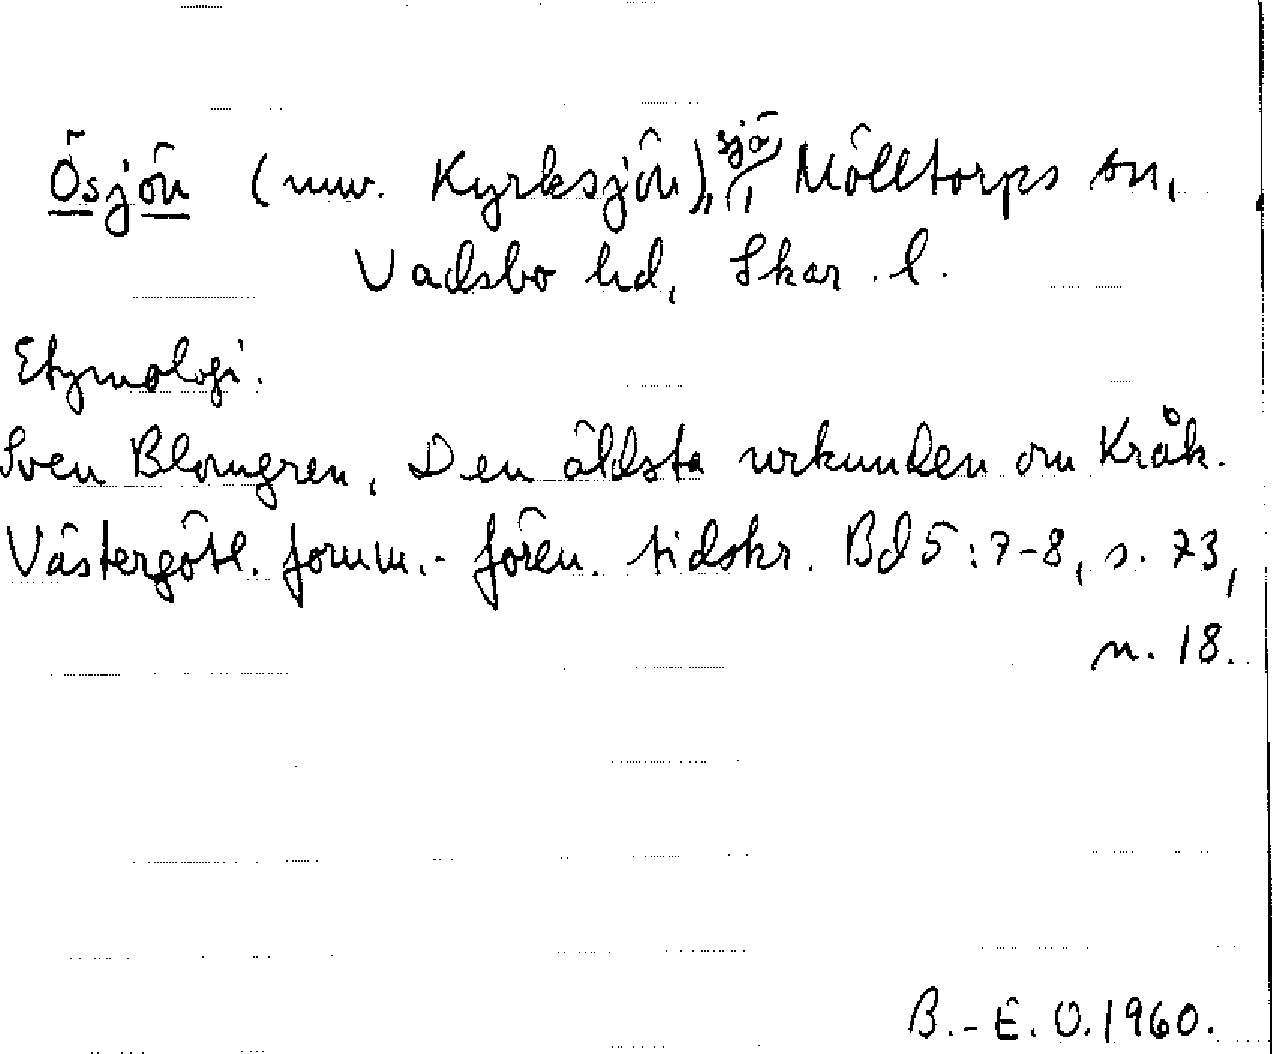 Ösjön (nuv. Kyrksjön), sjö, Mölltorps sn,
Vadsbo hd, Skar. l.
Etymologi.
Sven Blomgren, Den äldsta urkunden om Kråk.
Västergötl. fornm.-fören. tidskr. Bd 5:7-8, s. 73,
n. 18.
B.-E. O. 1960.